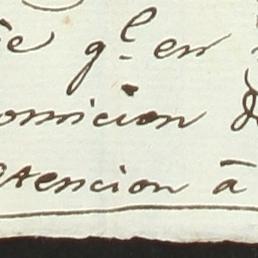 e q.l en
omicion d
atencion â